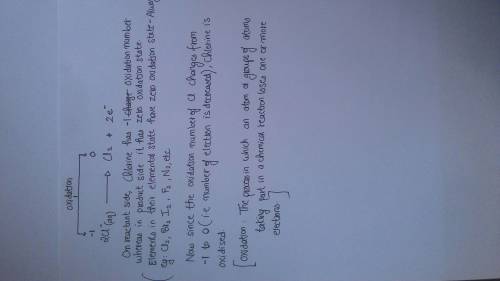 oxidation
-1 0
2Cl⁻(aq) ⟶ Cl2 + 2e⁻
On reactant side, Chlorine has -1 oxidation number
whereas in product side it has zero oxidation state.
(Elements in their elemental state have zero oxidation state - Alway
eg: Cl2, Br2, I2, F2, N2, etc
Now since the oxidation number of Cl changes from
-1 to 0 (i.e number of electron is decreased), Chlorine is
oxidised
[Oxidation: The process in which an atom or groups of atoms
taking part in a chemical reaction loses one or more
electrons]